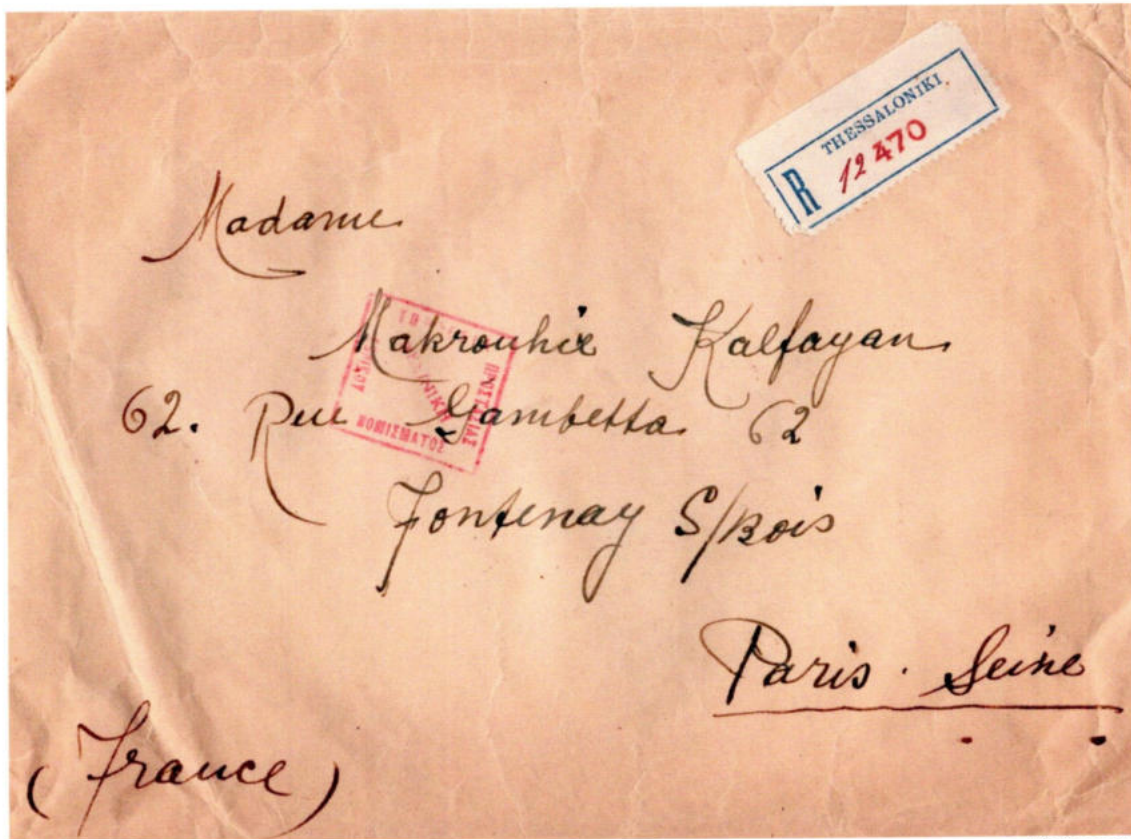 THESSALONIKI
R 12 470
Madame
Makrouhie Kalfayan
62. Rue Gambetta 62
Fontenay S/Bois
Paris. Seine
(France)
ΠΡΟΣΤΑΣΙΑΣ
ΝΟΜΙΣΜΑΤΟΣ